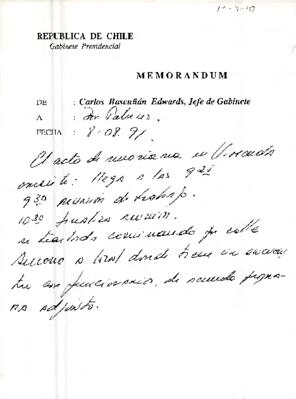 REPUBLICA DE CHILE
Gabinete Presidencial
MEMORANDUM
DE : Carlos Bascuñán Edwards, Jefe de Gabinete
A :
FECHA : 8.08.91
El acto de mañana en Vivienda
consiste: llega a las 9
9 30 reunión de trabajo.
10.30 finaliza reunión.
se traslada caminando por calle
Serrano a local donde tiene un encuen
tro con funcionarios, de acuerdo progra-
ma adjunto.